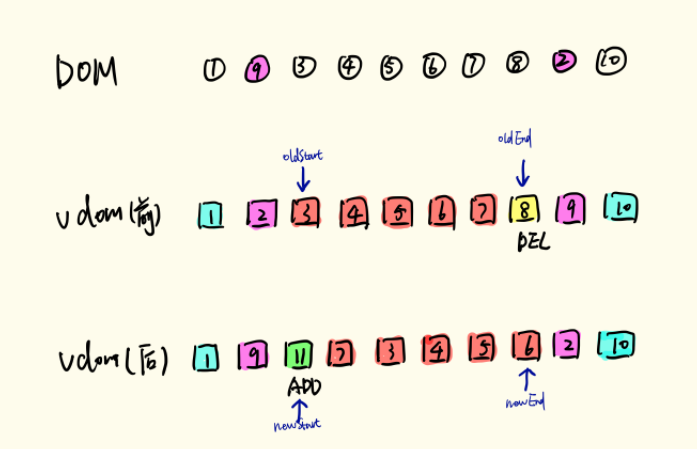 DOM ① ⑨ ③ ④ ⑤ ⑥ ⑦ ⑧ ② ⑩
oldStart oldEnd
vdom(前) 1 2 3 4 5 6 7 8 9 10
DEL
vdom(后) 1 9 11 7 3 4 5 6 2 10
ADD
newStart newEnd